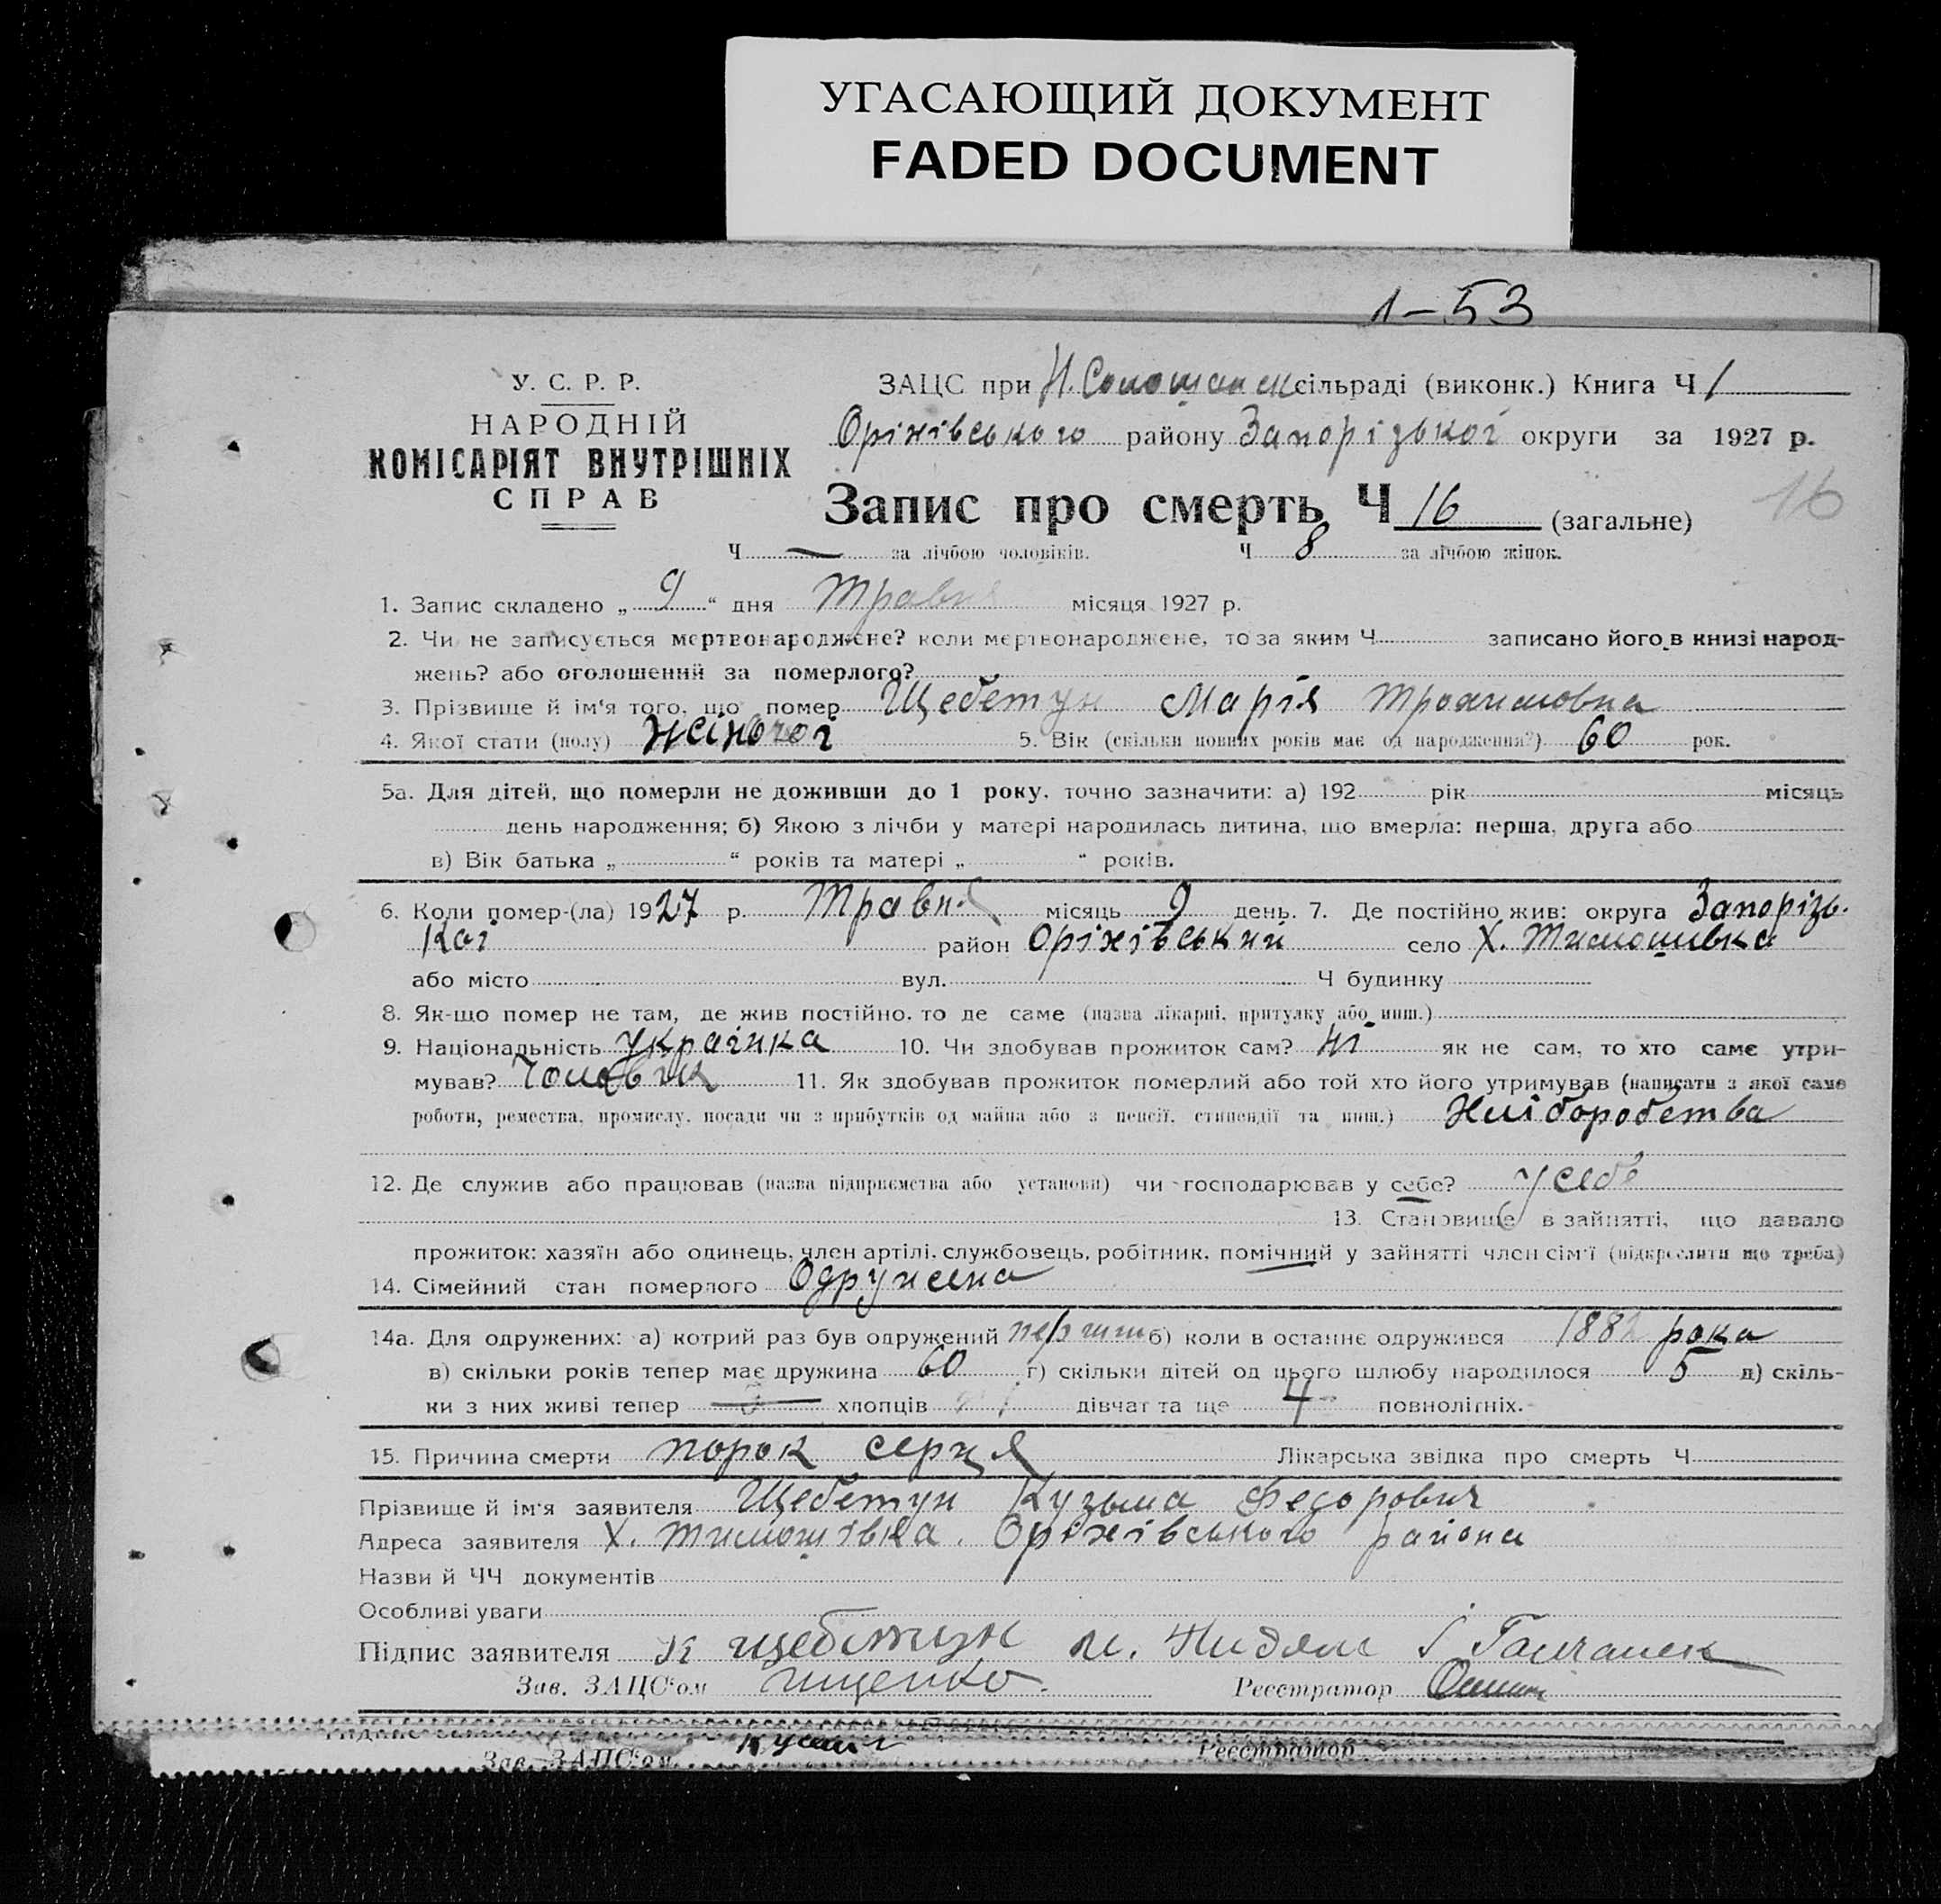 УГАСАЮЩИЙ ДОКУМЕНТ
FADED DOCUMENT
1–53
У. С. Р. Р.
НАРОДНІЙ
КОМІСАРІЯТ ВНУТРІШНІХ
СПРАВ
ЗАЦС при Н. сільраді (виконк.) Книга Ч 1
Оріхівського району Запорізької округи за 1927 р.
Запис про смерть Ч 16 (загальне)
16
Ч — за лічбою чоловіків. Ч 8 за лічбою жінок.
1. Запис складено „ 9 “ дня Травня місяця 1927 р.
2. Чи не записується мертвонароджене? коли мертвонароджене, то за яким Ч записано його в книзі народ-
жень? або оголошений за померлого?
3. Прізвище й ім'я того, що помер Щебетун Марія Трохимовна
4. Якої стати (полу) жіночої 5. Вік (скільки повних років має од народження?) 60 рок.
5а. Для дітей, що померли не доживши до 1 року, точно зазначити: а) 192 рік місяць
день народження; б) Якою з лічби у матері народилась дитина, що вмерла: перша, друга або
в) Вік батька „ “ років та матері „ “ років.
6. Коли помер-(ла) 1927 р. Травня місяць 9 день. 7. Де постійно жив: округа Запорізь-
кої район Оріхівський село Х. Тимошивка
або місто вул. Ч будинку
8. Як-що помер не там, де жив постійно, то де саме (назва лікарні, притулку або инш.)
9. Національність Українка 10. Чи здобував прожиток сам? ні як не сам, то хто саме утри-
мував? Чоловік 11. Як здобував прожиток померлий або той хто його утримував (написати з якої саме
роботи, ремества, промислу, посади чи з прибутків од майна або з пенсії, стипендії та инш.) Хліборобства
12. Де служив або працював (назва підприємства або установи) чи господарював у себе? у себе
13. Становище в зайнятті, що давало
прожиток: хазяїн або одинець, член артілі, службовець, робітник, помічний у зайнятті член сім'ї (підкреслити що треба)
14. Сімейний стан померлого Одружена
14а. Для одружених: а) котрий раз був одружений перший б) коли в останнє одружився 1882 рока
в) скільки років тепер має дружина 60 г) скільки дітей од цього шлюбу народилося 5 д) скіль-
ки з них живі тепер хлопців дівчат та ще 4 повнолітніх.
15. Причина смерти порок серця Лікарська звідка про смерть Ч
Прізвище й ім'я заявителя Щебетун Кузьма Федорович
Адреса заявителя Х. Тимошівка. Оріхівського района
Назви й ЧЧ документів
Особливі уваги
Підпис заявителя К Щебетун
Зав. ЗАЦС'ом Реєстратор
Зав. ЗАЦС'ом Реєстратор